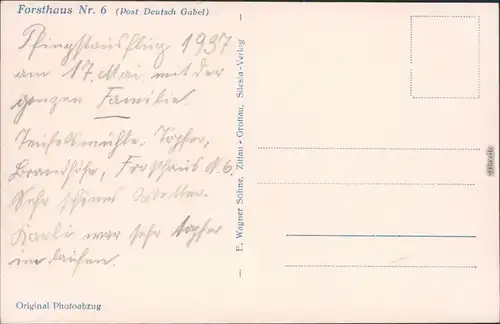 Forsthaus Nr. 6 (Post Deutsch Gabel)
Pfingstausflug 1937
am 17. Mai mit der
ganzen Familie.
Teufelsmühle, Töpfer,
Brandhöhe, Forsthaus N. 6.
Sehr schönes Wetter.
Karli war sehr tapfer
im laufen.
E. Wagner Söhne, Zittau - Grottau, Silesia-Verlag
Original Photoabzug